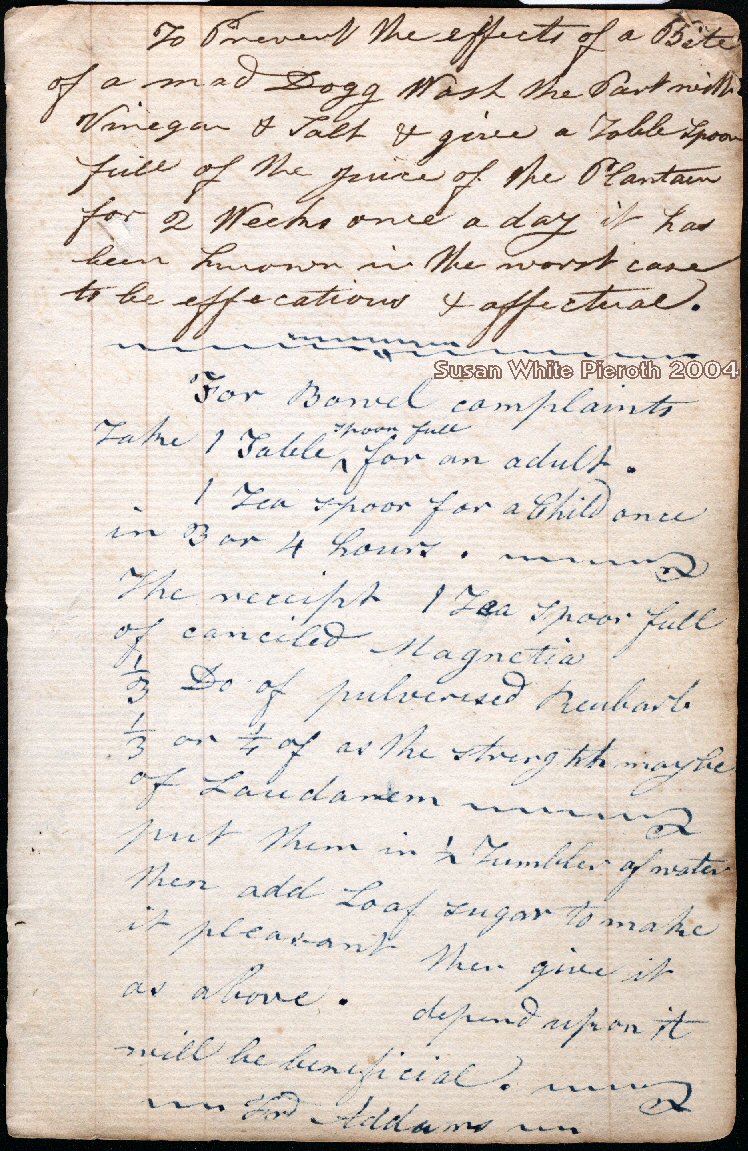 To Prevent the effects of a Bite
of a mad Dogg Wash the Part with
Vinegar & Salt & give a Table Spoon
full of the juice of the Plantain
for 2 Weeks once a day it has
been known in the worst case
to be effecatious & affectual.
Susan White Pieroth 2004
For Bowel complaints
spoon full
Take 1 Table ^ for an adult.
1 Tea spoon for a Child once
in 3 or 4 hours.
The receipt 1 Tea spoon full
of canciled Magnetia
1/3 Do of pulverised Reubarb
1/3 or 1/4 of as the strength may be
of Laudanem
put them in 1/2 Tumbler of water
then add Loaf sugar to make
it pleasant then give it
as above. depend upon it
will be beneficial.
Addams